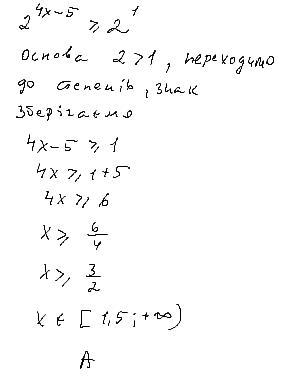 2^{4x-5} ≥ 2^1
основа 2>1, переходимо
до степенів, знак
зберігаємо
4x-5 ≥ 1
4x ≥ 1+5
4x ≥ 6
x ≥ 6/4
x ≥ 3/2
x ∈ [1,5; +∞)
A